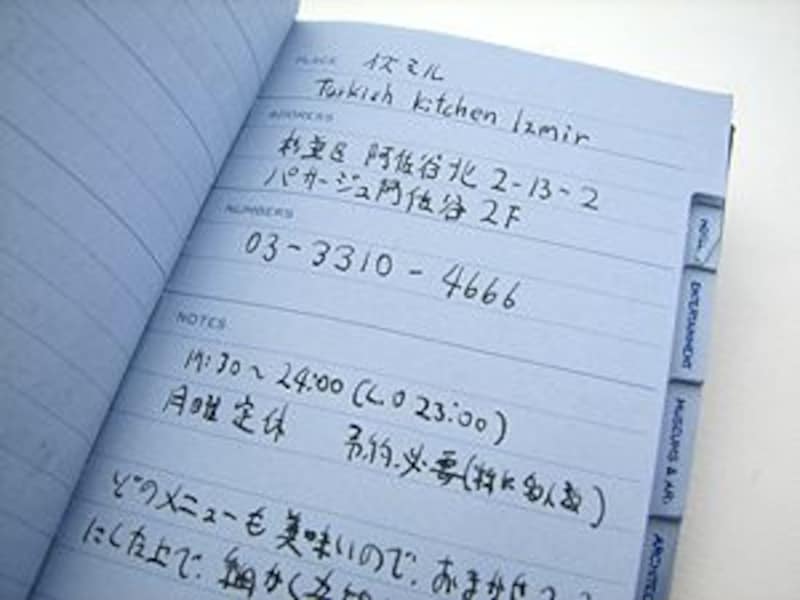 PLACE イズミル
Turkish kitchen Izmir
ADDRESS
杉並区 阿佐谷北 2-13-2
パサージュ阿佐谷 2F
NUMBERS
03-3310-4666
NOTES
17:30~24:00 (L.O 23:00)
月曜定休 予約必要(特に多人数)
どのメニューも美味いので、おまかせ
にした上で、細かく
ENTERTAINMENT
MUSEUMS & AR
ARCHITEC